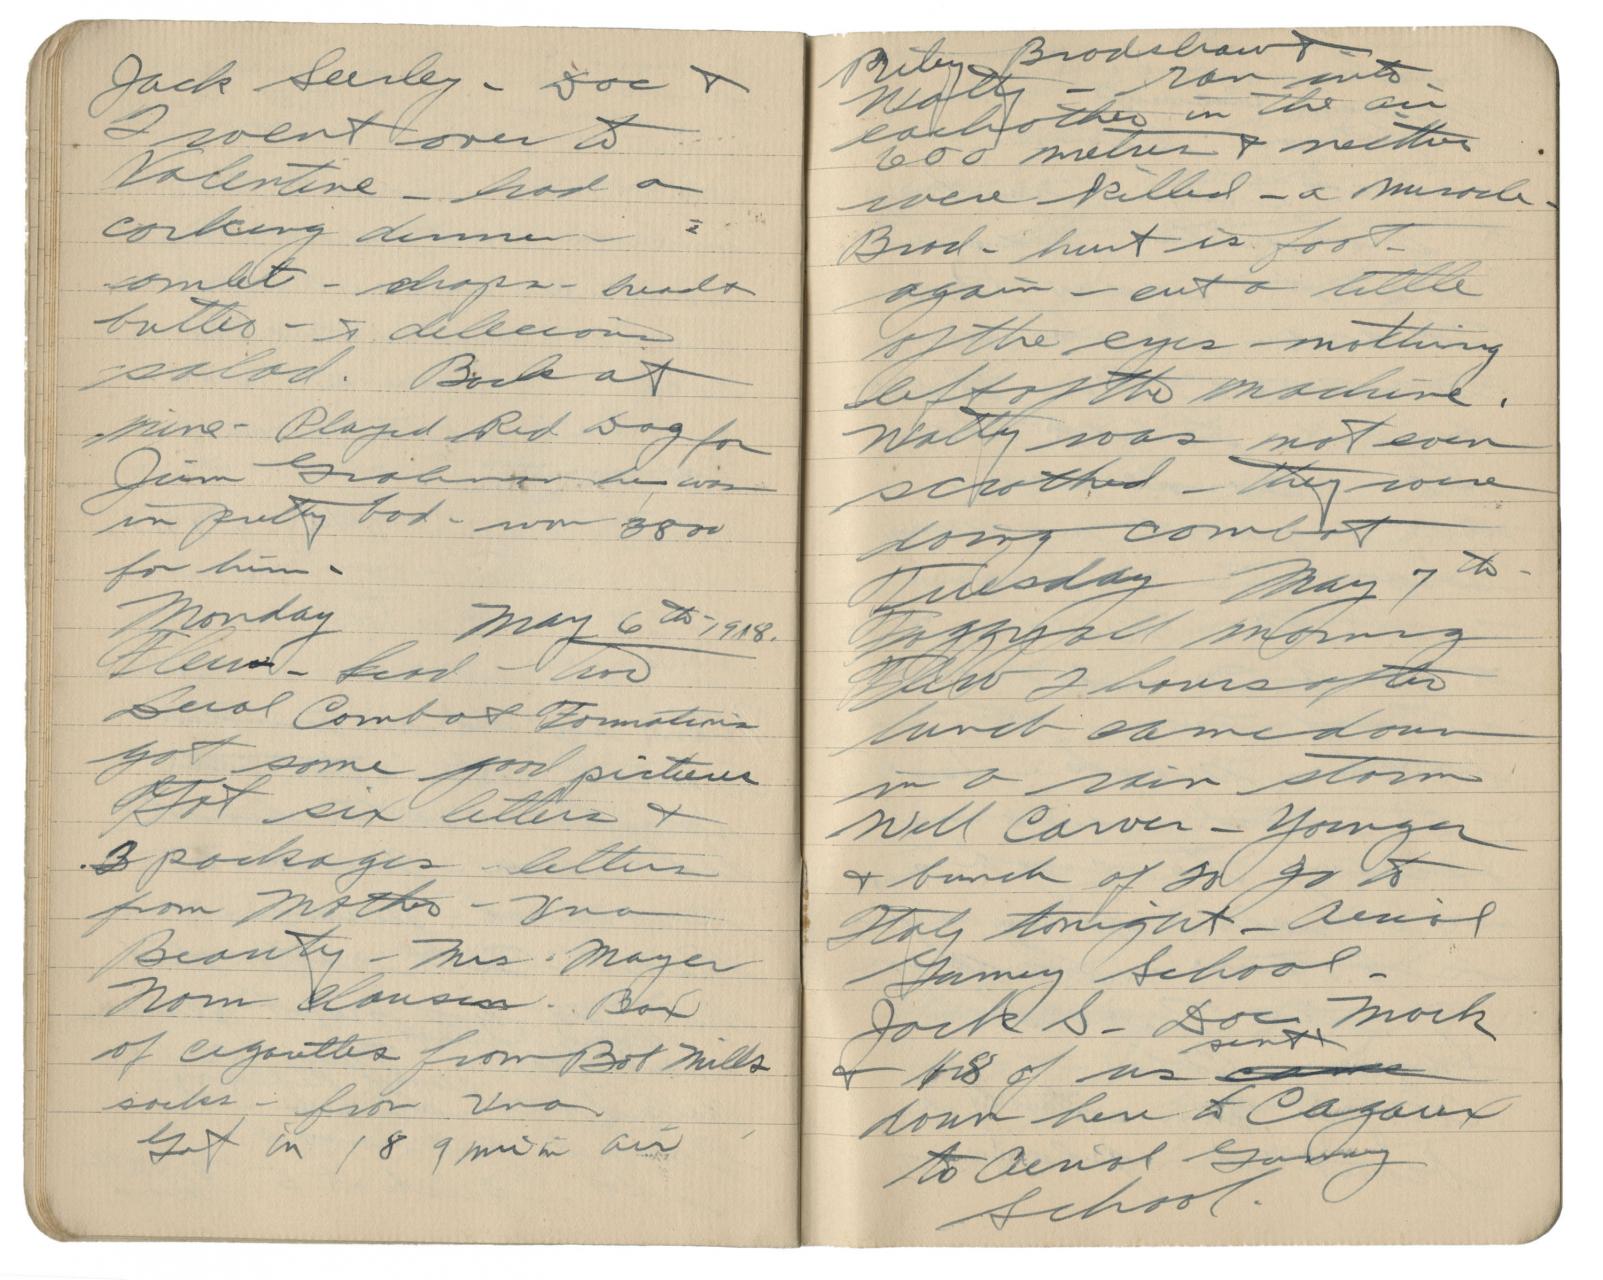 Jack Seerley - Doc &
I went over to
Valentine - had a
corking dinner
omlet - chops - bread &
butter - & delecious
salad. Back at
nine - Played Red Dog for
Jim Graham he was
in pretty bad - won 3800
for him -
Monday May 6th - 1918.
Flew - had two
Serial Combat Formations
got some good pictures
Got six letters &
3 packages letters
from Mother - Una
Beauty - Mrs. Mayer
Norn Clausen. Box
of cigarettes from Bot Mills
socks - from Una
Got in 189 min in air
Riley Bradshaw &
Watty - ran into
eachother in the air
600 metres & neither
were killed - a miracle -
Brad - hurt is foot -
again - cut a little
of the eyes nothing
left of the machine.
Watty was not even
scrathed - they were
doing combat
Tuesday May 7th -
Foggy all morning
Flew 2 hours after
lunch came down
in a rain storm
Will Carver - Younger
& bunch of 20 go to
Italy tonight - Aerial
Gunney School -
Jack S - Doc Mock
sent
& 18 of us came
down here to Cazaux
to Aerial Gunney
School.